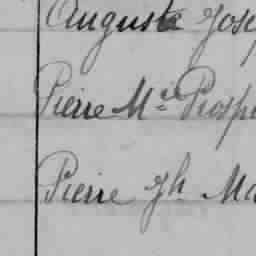 Auguste Jose
Pierre M.ie Prosp
Pierre Jh. Ma